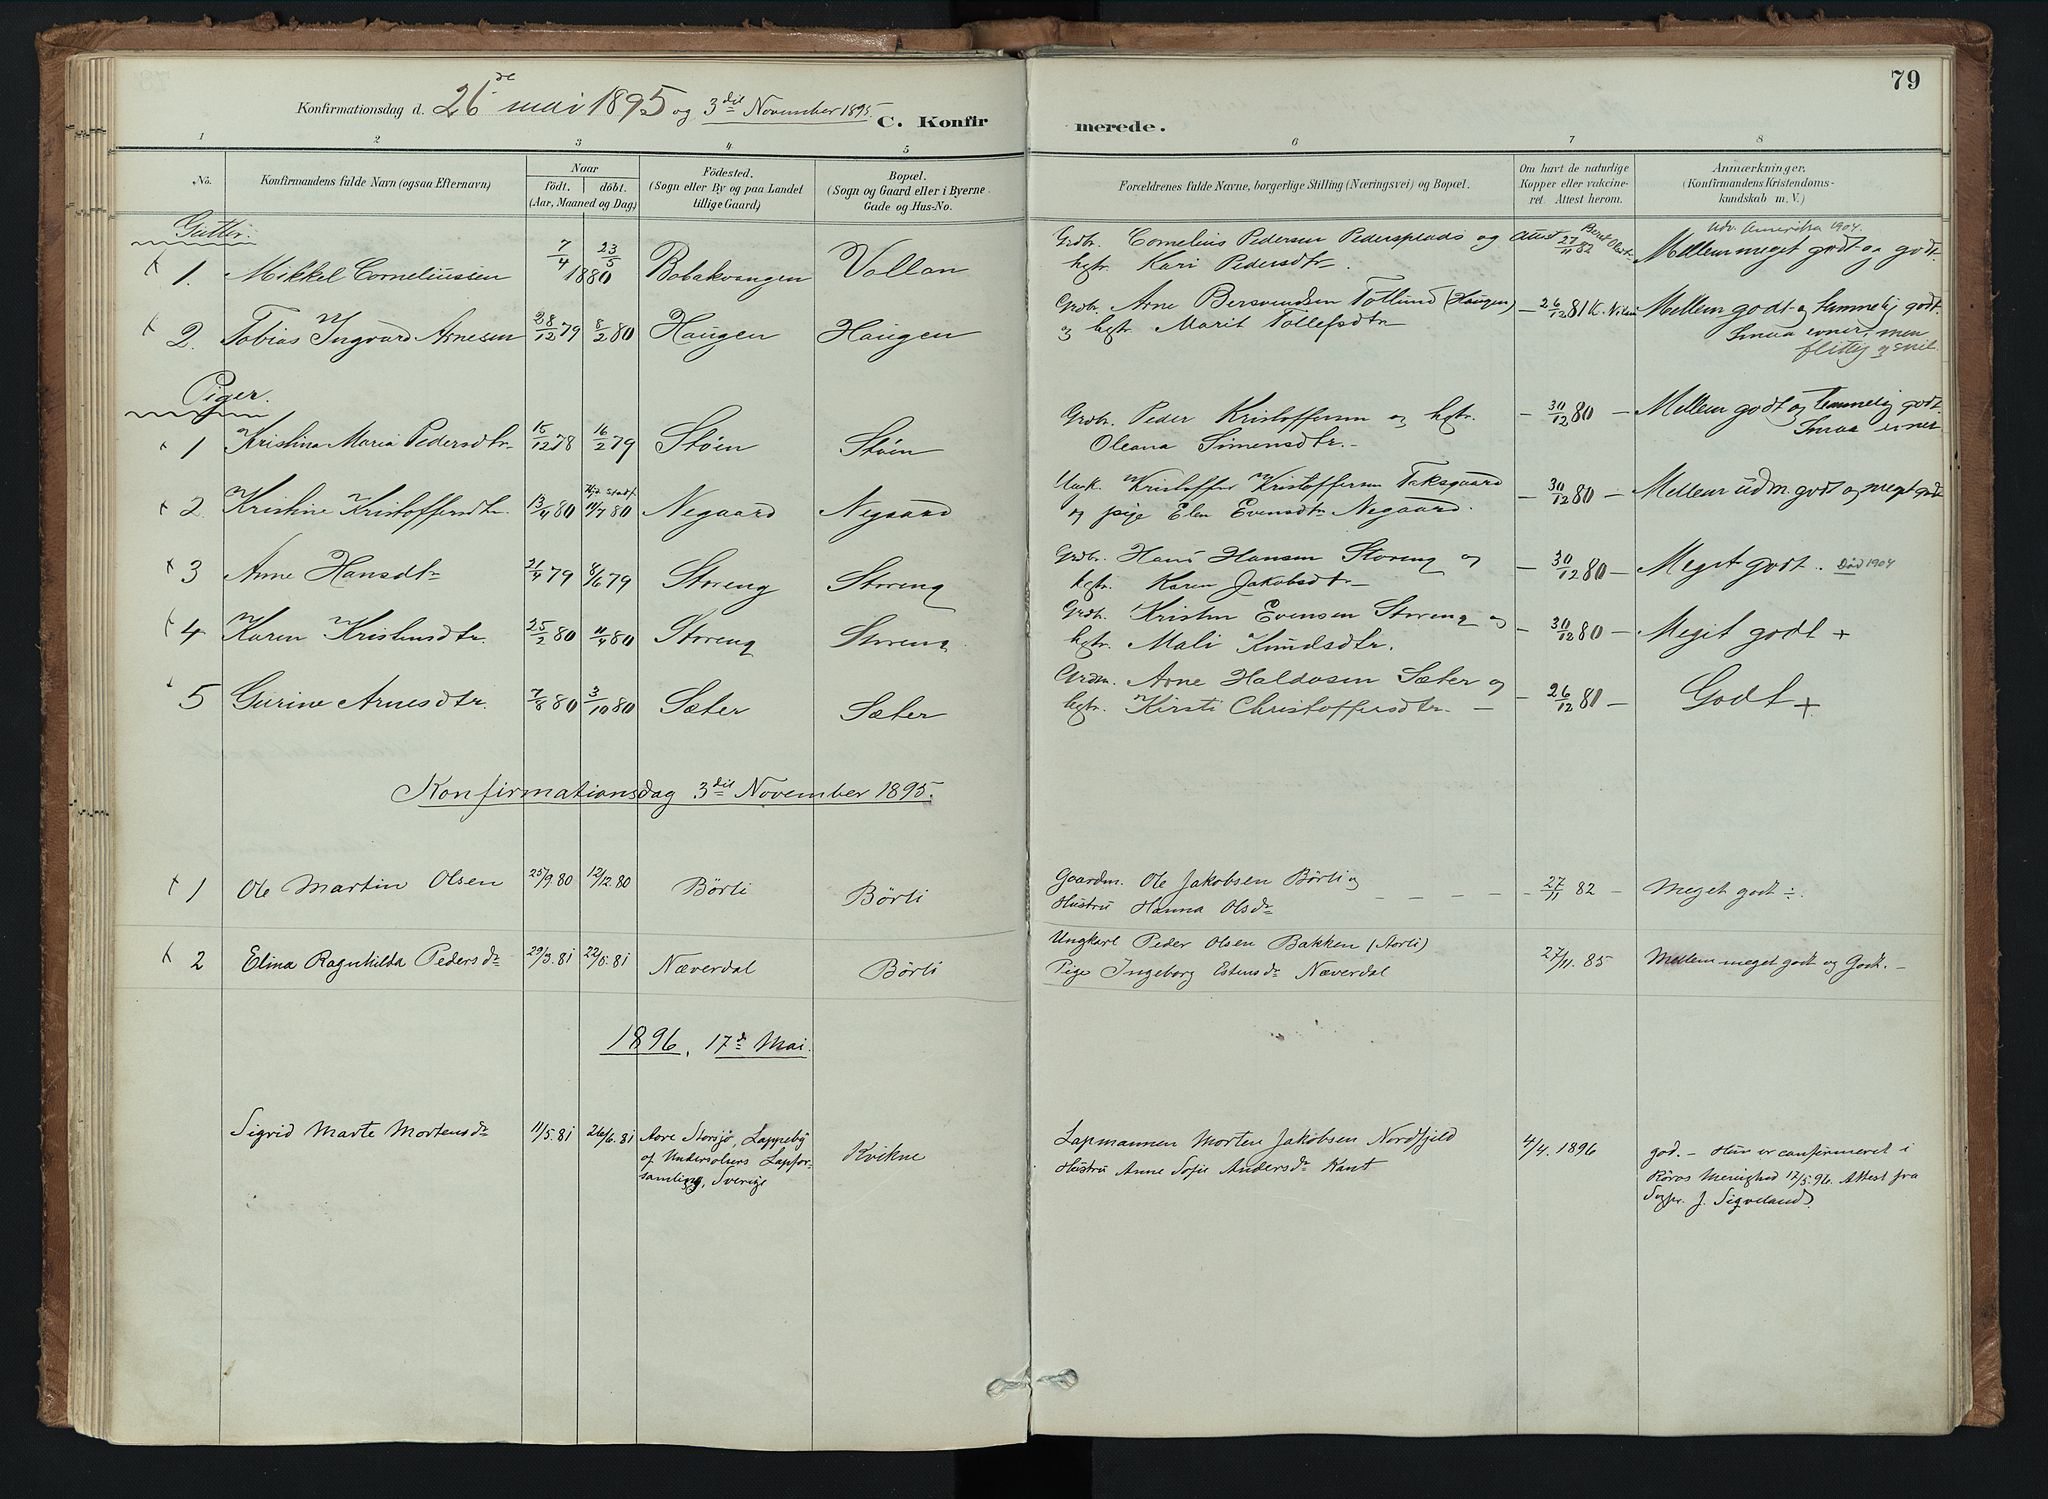 79
Konfirmationsdag d. 26de mai 1895 og 3die November 1895. C. Konfirmerede.
1 2 3 4 5 6 7 8
No. Konfirmandens fulde Navn (ogsaa Efternavn) Naar født. døbt. (Aar, Maaned og Dag) Fødested. (Sogn eller By og paa Landet tillige Gaard) Bopæl. (Sogn og Gaard eller i Byerne Gade og Hus-No. Forældrenes fulde Navne, borgerlige Stilling (Næringsvei) og Bopæl. Om havt de naturlige Kopper eller vakcineret. Attest herom. Anmærkninger. (Konfirmandens Kristendomskundskab m. V.)
Gutter.
Udv. Amerika 1904.
1. Mikkel Corneliussen 7/4 23/5 1880 Bobakvangen Vollan Grdbr. Cornelius Pedersen Pedersplads og hstr. Kari Pedersdtr. Attest 27/11 82 Mellem meget godt og godt.
2. Tobias Ingvard Arnesen 28/12 79 8/2 80 Haugen Haugen Grdbr. Arne Bersvendsen Totlund (Haugen) og hstr. Marit Tollefsdtr – 26/12 81 K. Nilsen Mellem godt og temmelig godt. Smaa evner, men flittig og snil.
Piger.
1 Kristina Maria Pedersdtr. 15/12 78 16/2 79 Støen Støen Grdbr. Peder Kristoffersen og hstr. Oleana Simensdtr. – 30/12 80 – Mellem godt og temmelig godt. Smaa evner
2 Kristine Kristoffersdtr. 13/4 80 Hjd. stadf. 11/7 80 Negaard Negaard Ungk. Kristoffer Kristoffersen Taksgaard og pige Elen Evensdtr Negaard. – 30/12 80 – Mellem udm. godt og meget godt
3 Anne Hansdtr 21/4 79 8/6 79 Storeng Storeng Grdbr. Hans Hansen Storeng og hstr. Karen Jakobsdtr – 30/12 80 – Meget godt. Død 1904
4 Karen Kristensdtr. 25/2 80 11/4 80 Storeng Storeng Grdbr. Kristen Evensen Storeng og hstr. Mali Knudsdtr. – 30/12 80 – Meget godt +
5 Gurine Arnesdtr. 7/8 80 3/10 80 Sæter Sæter Grdm. Arne Haldosen Sæter og hstr. Kirsti Christoffersdtr. – 26/12 81 – Godt +
Konfirmationsdag 3die November 1895.
1 Ole Martin Olsen 25/9.80 12/12.80 Børli Børli Gaardm. Ole Jakobsen Børli og Hustru Hanna Olsdr – 27/11 82 – Meget godt ÷.
2 Elina Ragnhilda Pedersdr 29/3.81 22/5.81 Næverdal Børli Ungkarl Peder Olsen Bakken (Storli) Pige Ingeborg Estensdr Næverdal 27/11.85 Mellem meget godt og Godt. –
1896. 17de Mai.
Sigrid Marte Mortensdr 11/5.81 26/6.81 Aare Storsjø, Lappeby af Undersåkers Lapforsamling, Sverige Kvikne Lapmannen Morten Jakobsen Nordfjeld Hustru Anne Sofie Andersdr Kant 4/4. 1896 god. – Hun er confirmeret i Røros Menighed 17/5.96. Attest fra Sogpr. J. Sigveland.